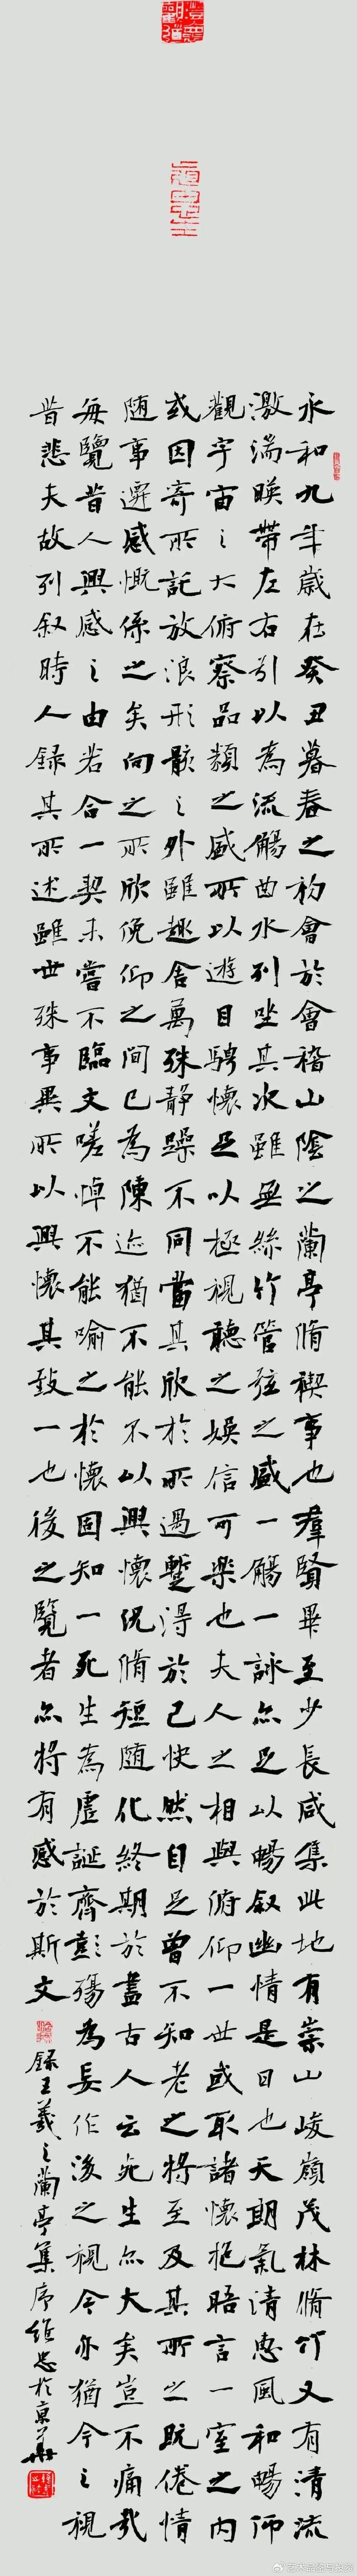 永和九年歲在癸丑暮春之初會於會稽山陰之蘭亭脩禊事也羣賢畢至少長咸集此地有崇山峻嶺茂林脩竹又有清流
激湍暎帶左右引以為流觴曲水列坐其次雖無絲竹管弦之盛一觴一詠亦足以暢叙幽情是日也天朗氣清惠風和暢仰
觀宇宙之大俯察品類之盛所以遊目騁懷足以極視聽之娛信可樂也夫人之相與俯仰一世或取諸懷抱晤言一室之內
或因寄所託放浪形骸之外雖趣舍萬殊靜躁不同當其欣於所遇蹔得於己快然自足曾不知老之將至及其所之既倦情
随事遷感慨係之矣向之所欣俛仰之間已為陳迹猶不能不以興懷況脩短随化終期於盡古人云死生亦大矣豈不痛哉
每覽昔人興感之由若合一契未嘗不臨文嗟悼不能喻之於懷固知一死生為虛誕齊彭殤為妄作後之視今亦猶今之視
昔悲夫故列叙時人錄其所述雖世殊事異所以興懷其致一也後之覽者亦將有感於斯文
錄王羲之蘭亭集序維忠於京華